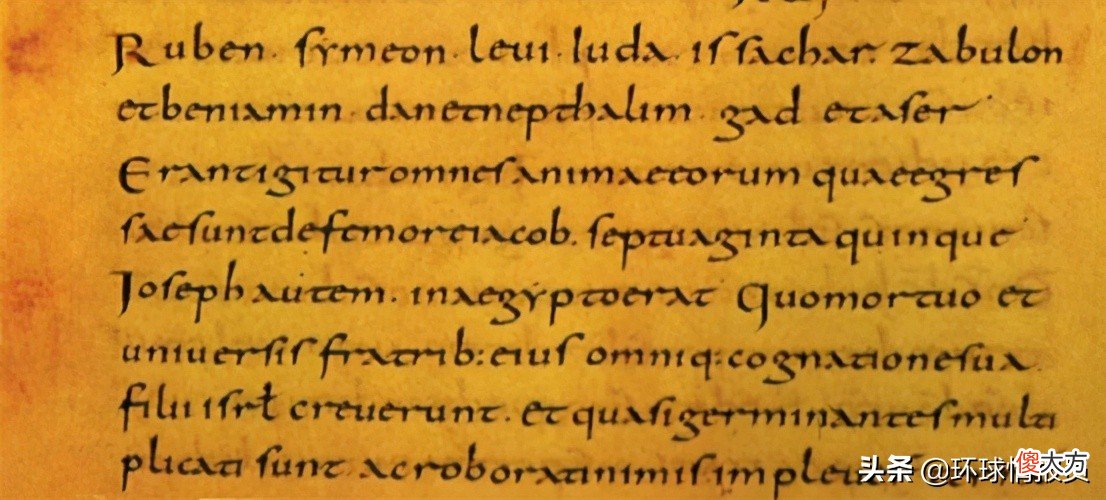 Ruben. symeon. leui. Iuda. issachar. zabulon
etbeniamin. danetnepthalim. gad etaser
Erantigituromnesanimaeeorum quaeegres
saesuntdefemoreiacob. septuaginta quinque
Ioseph autem. inaegyptoerat Quomortuo et
uniuersis fratrib: eius omniq: cognationesua.
filii isrł creuerunt. et quasigerminantesmulti
plicati sunt acroboratinimis impleue
头条 @环球情报员
傻大方